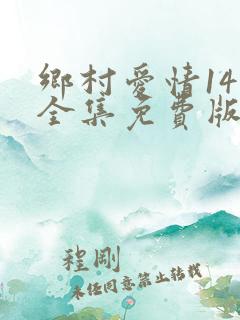 鄉村愛情14
全集免費版
程剛
未经同意禁止转载